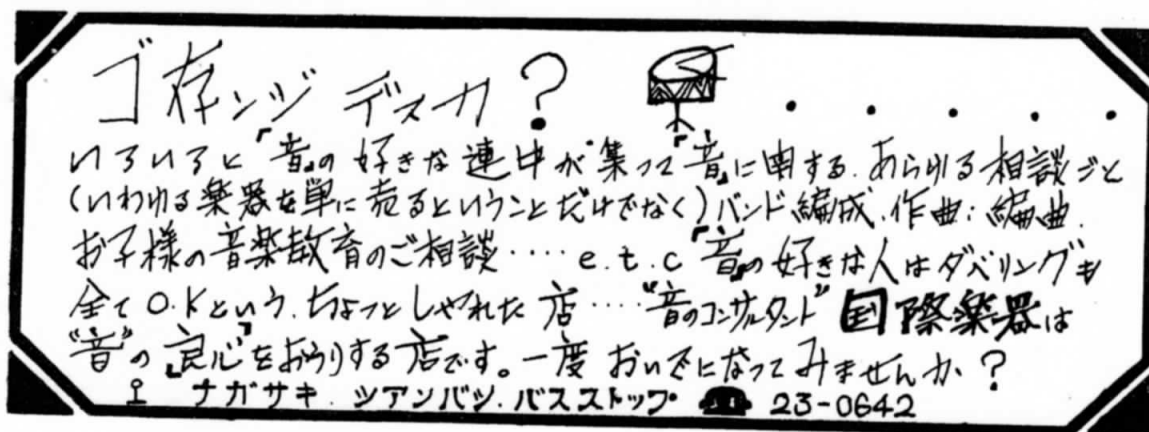 ゴ存ンジ デスカ? . . . . .
いろいろと『音』の好きな連中が集って『音』に関する.あらゆる相談ごと
(いわゆる楽器を単に売るということだけでなく)バンド編成.作曲:編曲.
お子様の音楽教育のご相談‥‥e.t.c『音』の好きな人はダベリングも
全てO.Kという.ちょっとしゃれた店‥‥"音のコンサルタント"国際楽器は
"音"の『良心』をおうりする店です。一度おいでになってみませんか?
ナガサキ.ツアンバシ.バスストップ 23-0642